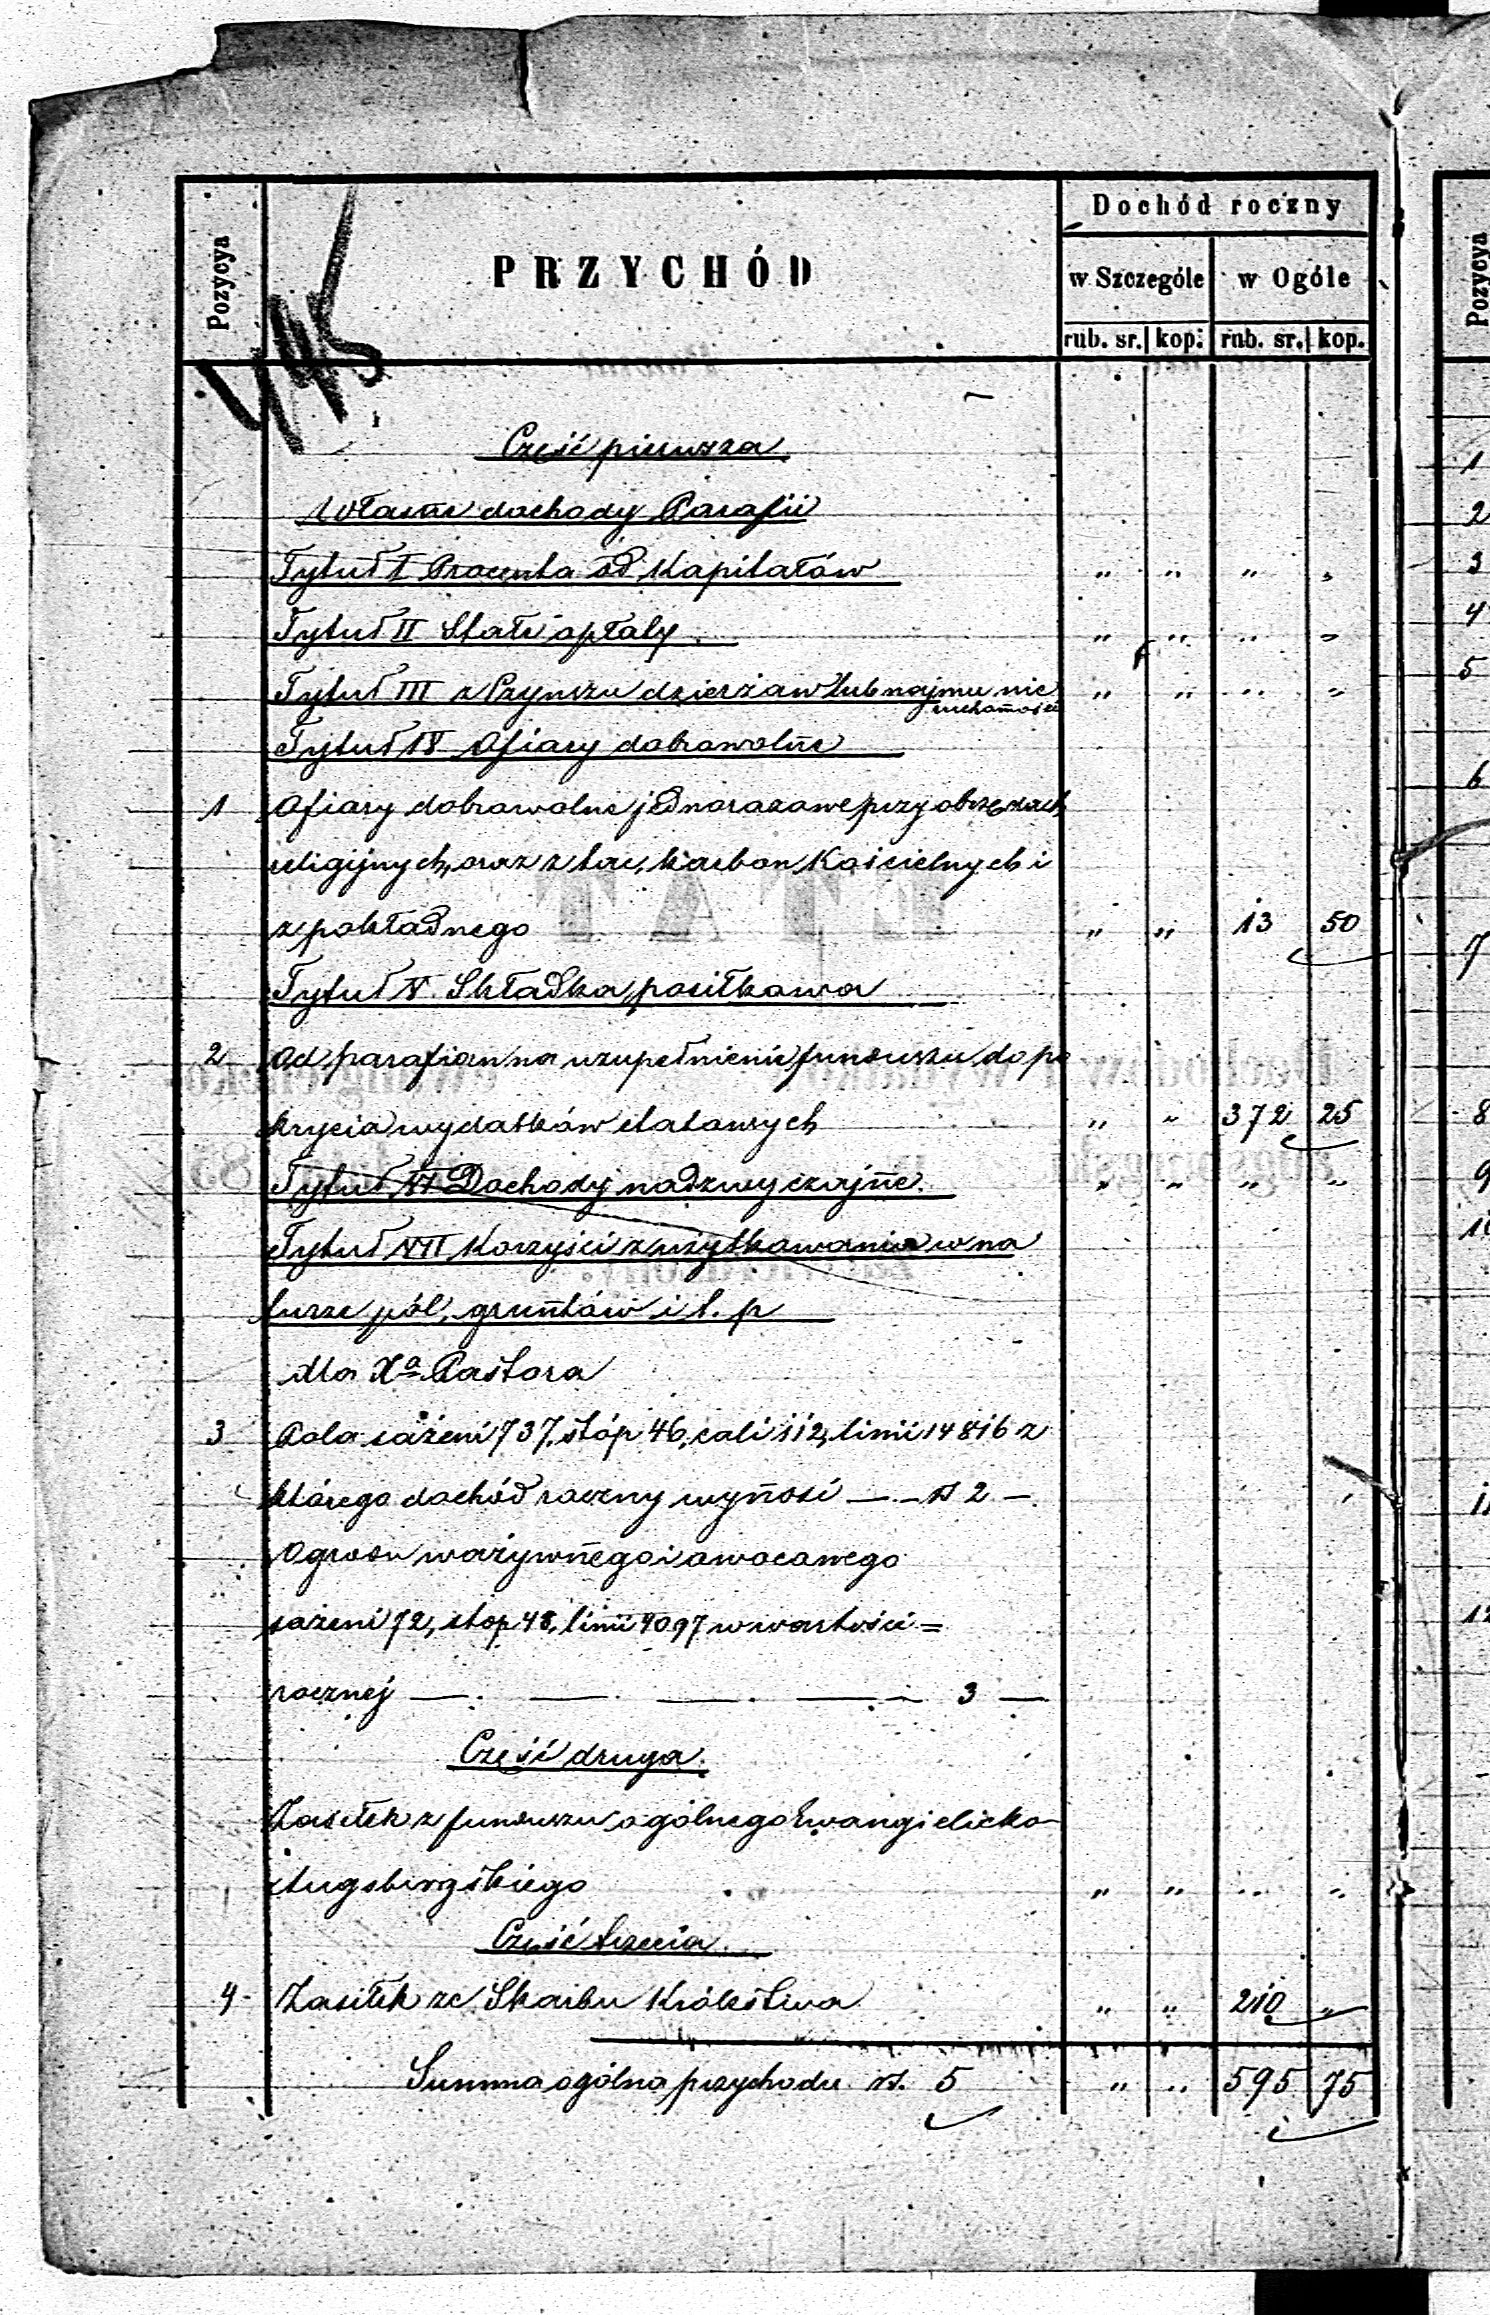 Pozycya
PRZYCHÓD
Dochód roczny
w Szczególe w Ogóle
rub. sr. kop. rub. sr. kop.
Część pierwsza
Własne dochody Parafii
Tytuł I Procenta od Kapitałów " " " "
Tytuł II Stałe opłaty " " " "
Tytuł III z Czynszu dzierżaw lub najmu nie " " " "
ruchomości
Tytuł IV Ofiary dobrowolne
1 Ofiary dobrowolne jednorazowe przy obrzędach
religijnych, oraz z tac, karbon Kościelnych i
z pokładnego " " 13 50
Tytuł V Składka posiłkowa
2 Od parafian na uzupełnienie funduszu do po
krycia wydatków etatowych " " 372 25
Tytuł VI Dochody nadzwyczajne. " " " "
Tytuł VII Korzyści z użytkowania w na
turze pól, gruntów i t. p
dla Xa Pastora
3 Pola sążeni 737, stóp 46, cali 112, linii 14816 z
którego dochód roczny wynosi — - — 2 —
Ogrodu warzywnego i owocowego
sążeni 72, stop 48, linii 4097 w wartości =
rocznej — — — — 3 —
Część druga.
Zasiłek z funduszu ogólnego Ewangielicko-
Augsburgskiego " " " "
Część trzecia.
4 Zasiłek ze Skarbu Królestwa " " 210 "
Summa ogólna przychodu 5 " " 595 75
Pozycya
1
2
3
4
5
6
7
8
9